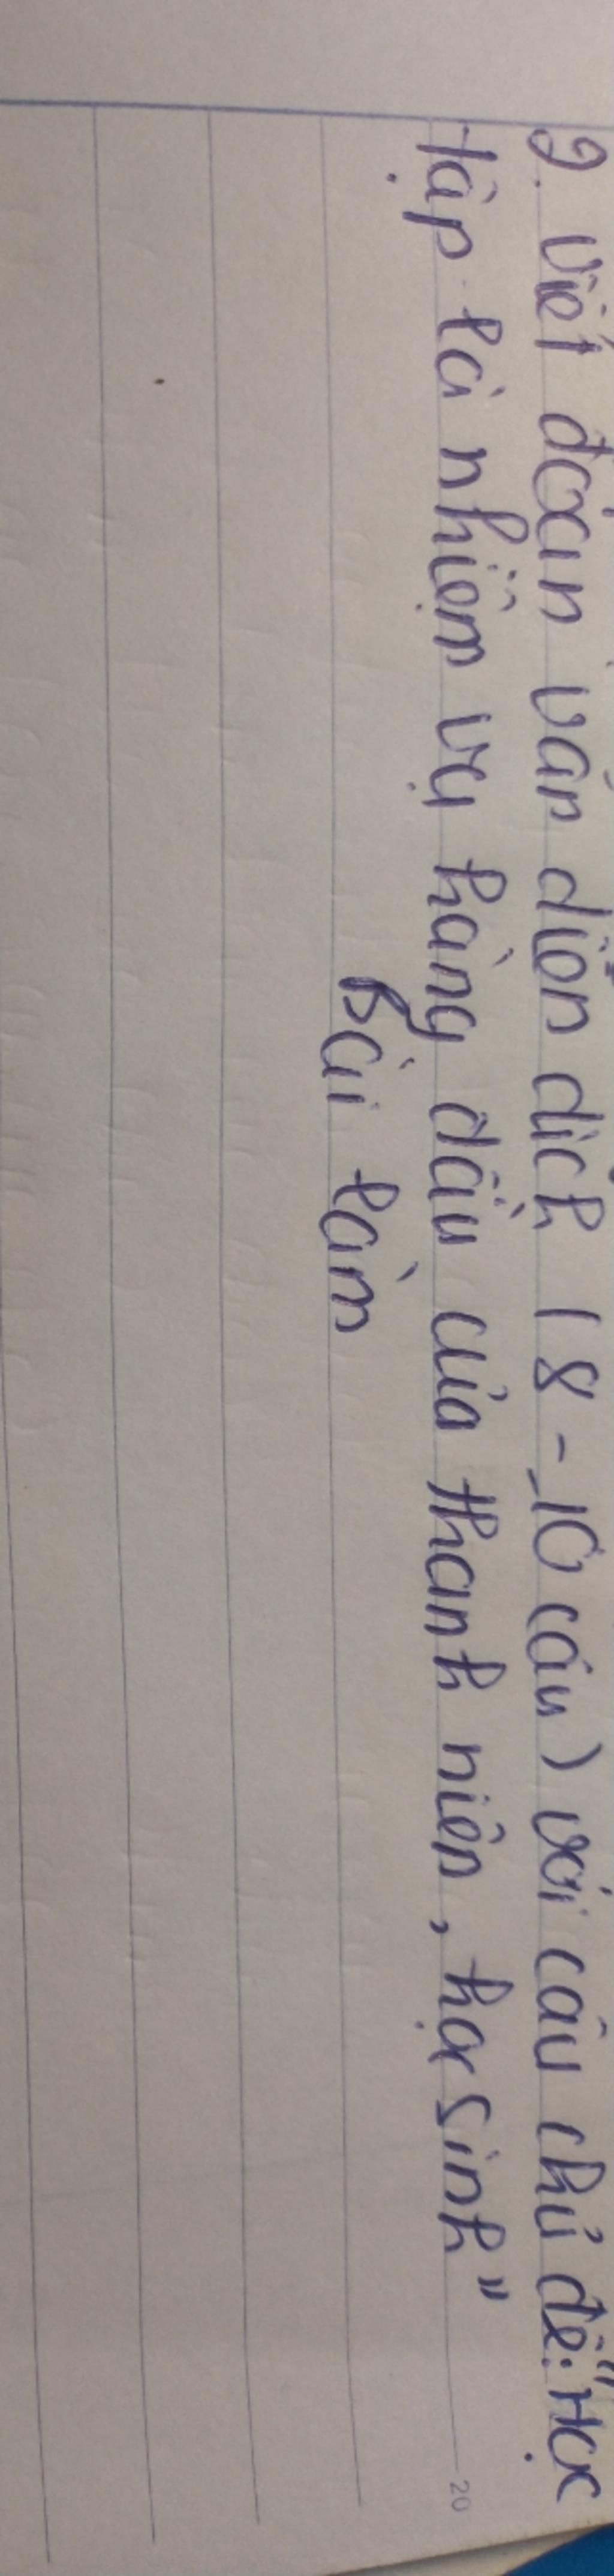 2. Viết đoạn văn diễn dịch (8-10 câu) với câu chủ đề: "Học
tập là nhiệm vụ hàng đầu của thanh niên, học sinh"
Bài làm
20